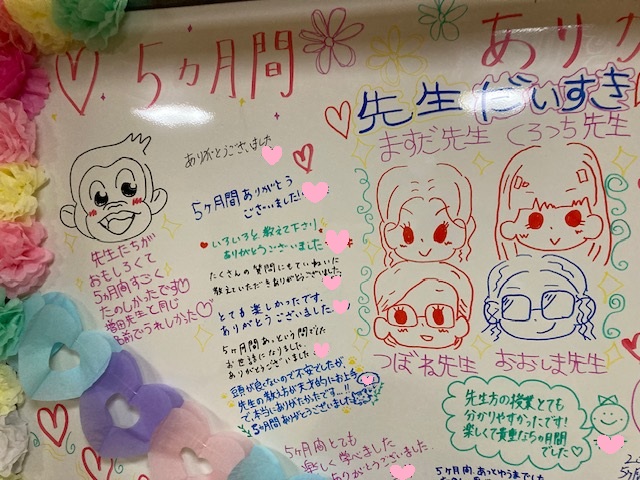 5ヵ月間
ありが
先生だいすき
ますだ先生
くろっち先生
つばね先生
おおしま先生
ありがとうございました
5ヶ月間ありがとう
ございました!
いろいろと教えて下さり
ありがとうございました
たくさんの質問にもていねいに
教えていただきありがとうございました
とても楽しかったです。
ありがとうございました。
5ヶ月間あっという間でした
お世話になりました。
ありがとうございました
頭が良くないので不安でしたが、
先生の教え方が天才的にお上手
で、本当にありがたかったです…!!
5ヶ月間ありがとうございました
5ヶ月間とても
楽しく学べました
ありがとうございました
先生たちが
おもしろくて
5ヵ月間すごく
たのしかったです
増田先生と同じ
名前でうれしかった
先生方の授業とても
分かりやすかったです!
楽しくて貴重な5か月間
でした
5ヶ月間、あっとゆうまでした